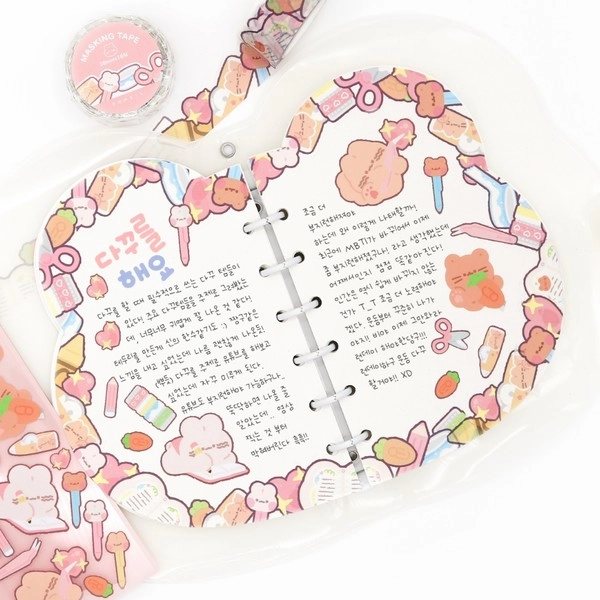 MASKING TAPE
다꾸를
해요
다꾸를 할 때 필수적으로 쓰는 다꾸 템들이
있다. 주요 다꾸템들을 주제로 그려봤는
데 너무너무 귀엽게 잘 나온 것 같다!
테두리를 만들게 되어
느낌을 내고 싶었는데 나름 괜찮게 나온듯!
(뿌듯) 다꾸를 주제로 유튜브를 해보고
싶었는데 자꾸 미루게 된다.
유튜브도 부지런해야 가능하구나..
뚝딱하면 나올 줄
알았는데.. 영상
찍는 것 부터
막혀버린다 흑흑!!
조금 더
부지런해져야
하는데 왜 이렇게 나태할까!
최근에 MBTI가 바뀌어서 이제
좀 부지런해졌구나! 라고 생각했는데
어째서인지 점점 똑같아진다!
인간은 역시 쉽게 바뀌지 않는
건가 T_T 조금 더 노력해야
겠다. 운동부터 꾸준히 나가
야지!! 비야 이제 그만와라
런데이 해야한단구!!!
런데이하구 운동 다꾸
할거야!! XD